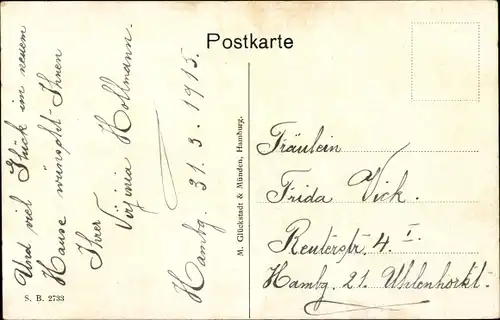 Postkarte
Und viel Glück im neuem
Hause wünscht Ihnen
Ihrer
Virginia Hollmann.
Hambg. 31.3.1915.
M. Glückstadt & Münden, Hamburg.
S. B. 2733
Fräulein
Frida Vick.
Reuterstr. 4. I.
Hambg. 21. Uhlenhorst.